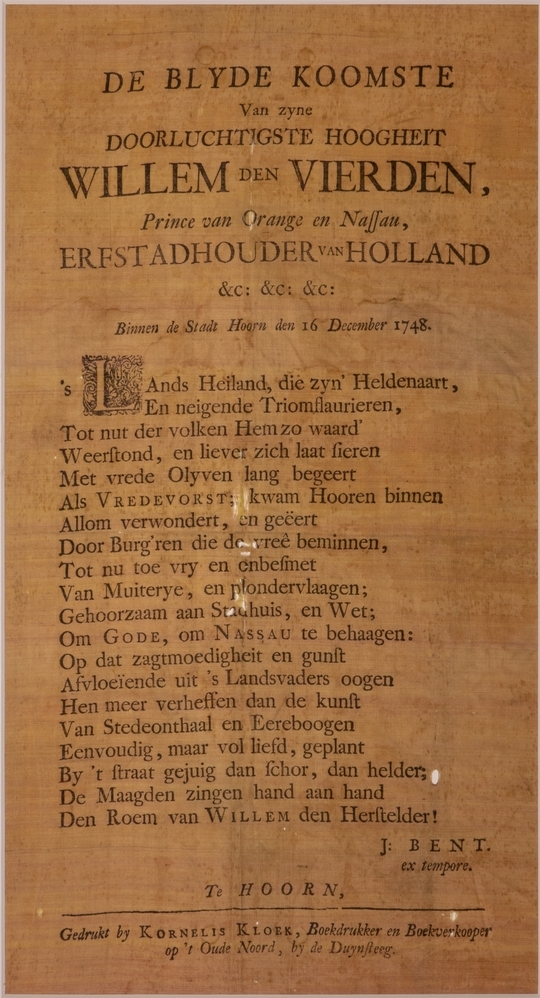 DE BLYDE KOOMSTE
Van zyne
DOORLUCHTIGSTE HOOGHEIT
WILLEM DEN VIERDEN,
Prince van Orange en Naſſau,
ERFSTADHOUDER VAN HOLLAND
&c: &c: &c:
Binnen de Stadt Hoorn den 16 December 1748.
's LAnds Heiland, die zyn' Heldenaart,
En neigende Triomflaurieren,
Tot nut der volken Hem zo waard'
Weerſtond, en liever zich laat ſieren
Met vrede Olyven lang begeert
Als VREDEVORST; kwam Hooren binnen
Allom verwondert, en geëert
Door Burg'ren die de vreê beminnen,
Tot nu toe vry en onbeſmet
Van Muiterye, en plondervlaagen;
Gehoorzaam aan Stadhuis, en Wet;
Om GODE, om NASSAU te behaagen:
Op dat zagtmoedigheit en gunſt
Afvloeïende uit 's Landsvaders oogen
Hen meer verheffen dan de kunſt
Van Stedeonthaal en Eereboogen
Eenvoudig, maar vol liefd, geplant
By 't ſtraat gejuig dan ſchor, dan helder;
De Maagden zingen hand aan hand
Den Roem van WILLEM den Herſtelder!
J: BENT.
ex tempore.
Te HOORN,
Gedrukt by KORNELIS KLOEK, Boekdrukker en Boekverkooper
op 't Oude Noord, by de Duynſteeg.